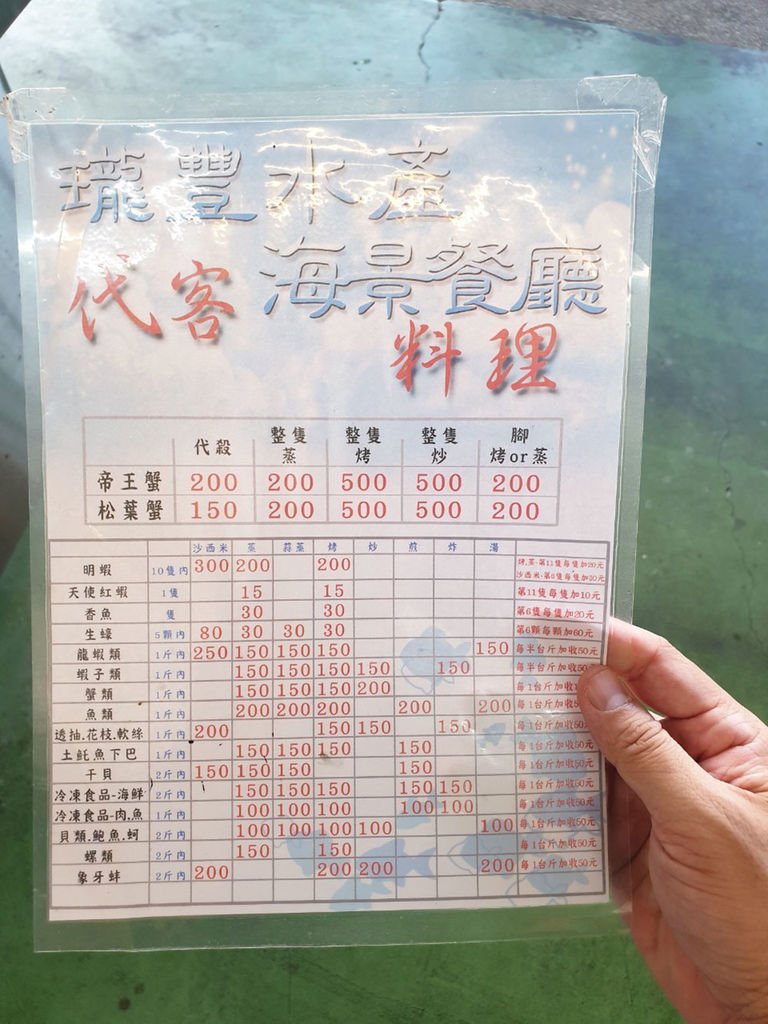 瓏豐水產
海景餐廳
代客
料理
代殺 整隻蒸 整隻烤 整隻炒 腳烤or蒸
帝王蟹 200 200 500 500 200
松葉蟹 150 200 500 500 200
沙西米 蒸 蒜蒸 烤 炒 煎 炸 湯
明蝦 10隻內 300 200 200 烤.蒸-第11隻每隻加20元
沙西米-第6隻每隻加30元
天使紅蝦 1隻 15 15 第11隻每隻加10元
香魚 隻 30 30 第6隻每隻加20元
生蠔 5顆內 80 30 30 30 第6顆每顆加60元
龍蝦類 1斤內 250 150 150 150 150 每半台斤加收50元
蝦子類 1斤內 150 150 150 150 150 每半台斤加收50元
蟹類 1斤內 150 150 150 200 每1台斤加收
魚類 1斤內 200 200 200 200 200 每1台斤加收50元
透抽.花枝.軟絲 1斤內 200 150 150 150 每1台斤加收50元
土魠魚下巴 1斤內 150 150 150 150 每1台斤加收50元
干貝 2斤內 150 150 150 150 每1台斤加收50元
冷凍食品-海鮮 1斤內 150 150 150 150 150 每1台斤加收50元
冷凍食品-肉.魚 1斤內 100 100 100 100 100 每1台斤加收50元
貝類.鮑魚.蚵 2斤內 100 100 100 100 100 每1台斤加收50元
螺類 2斤內 150 150 每1台斤加收50元
象牙蚌 2斤內 200 200 200 200 每1台斤加收50元